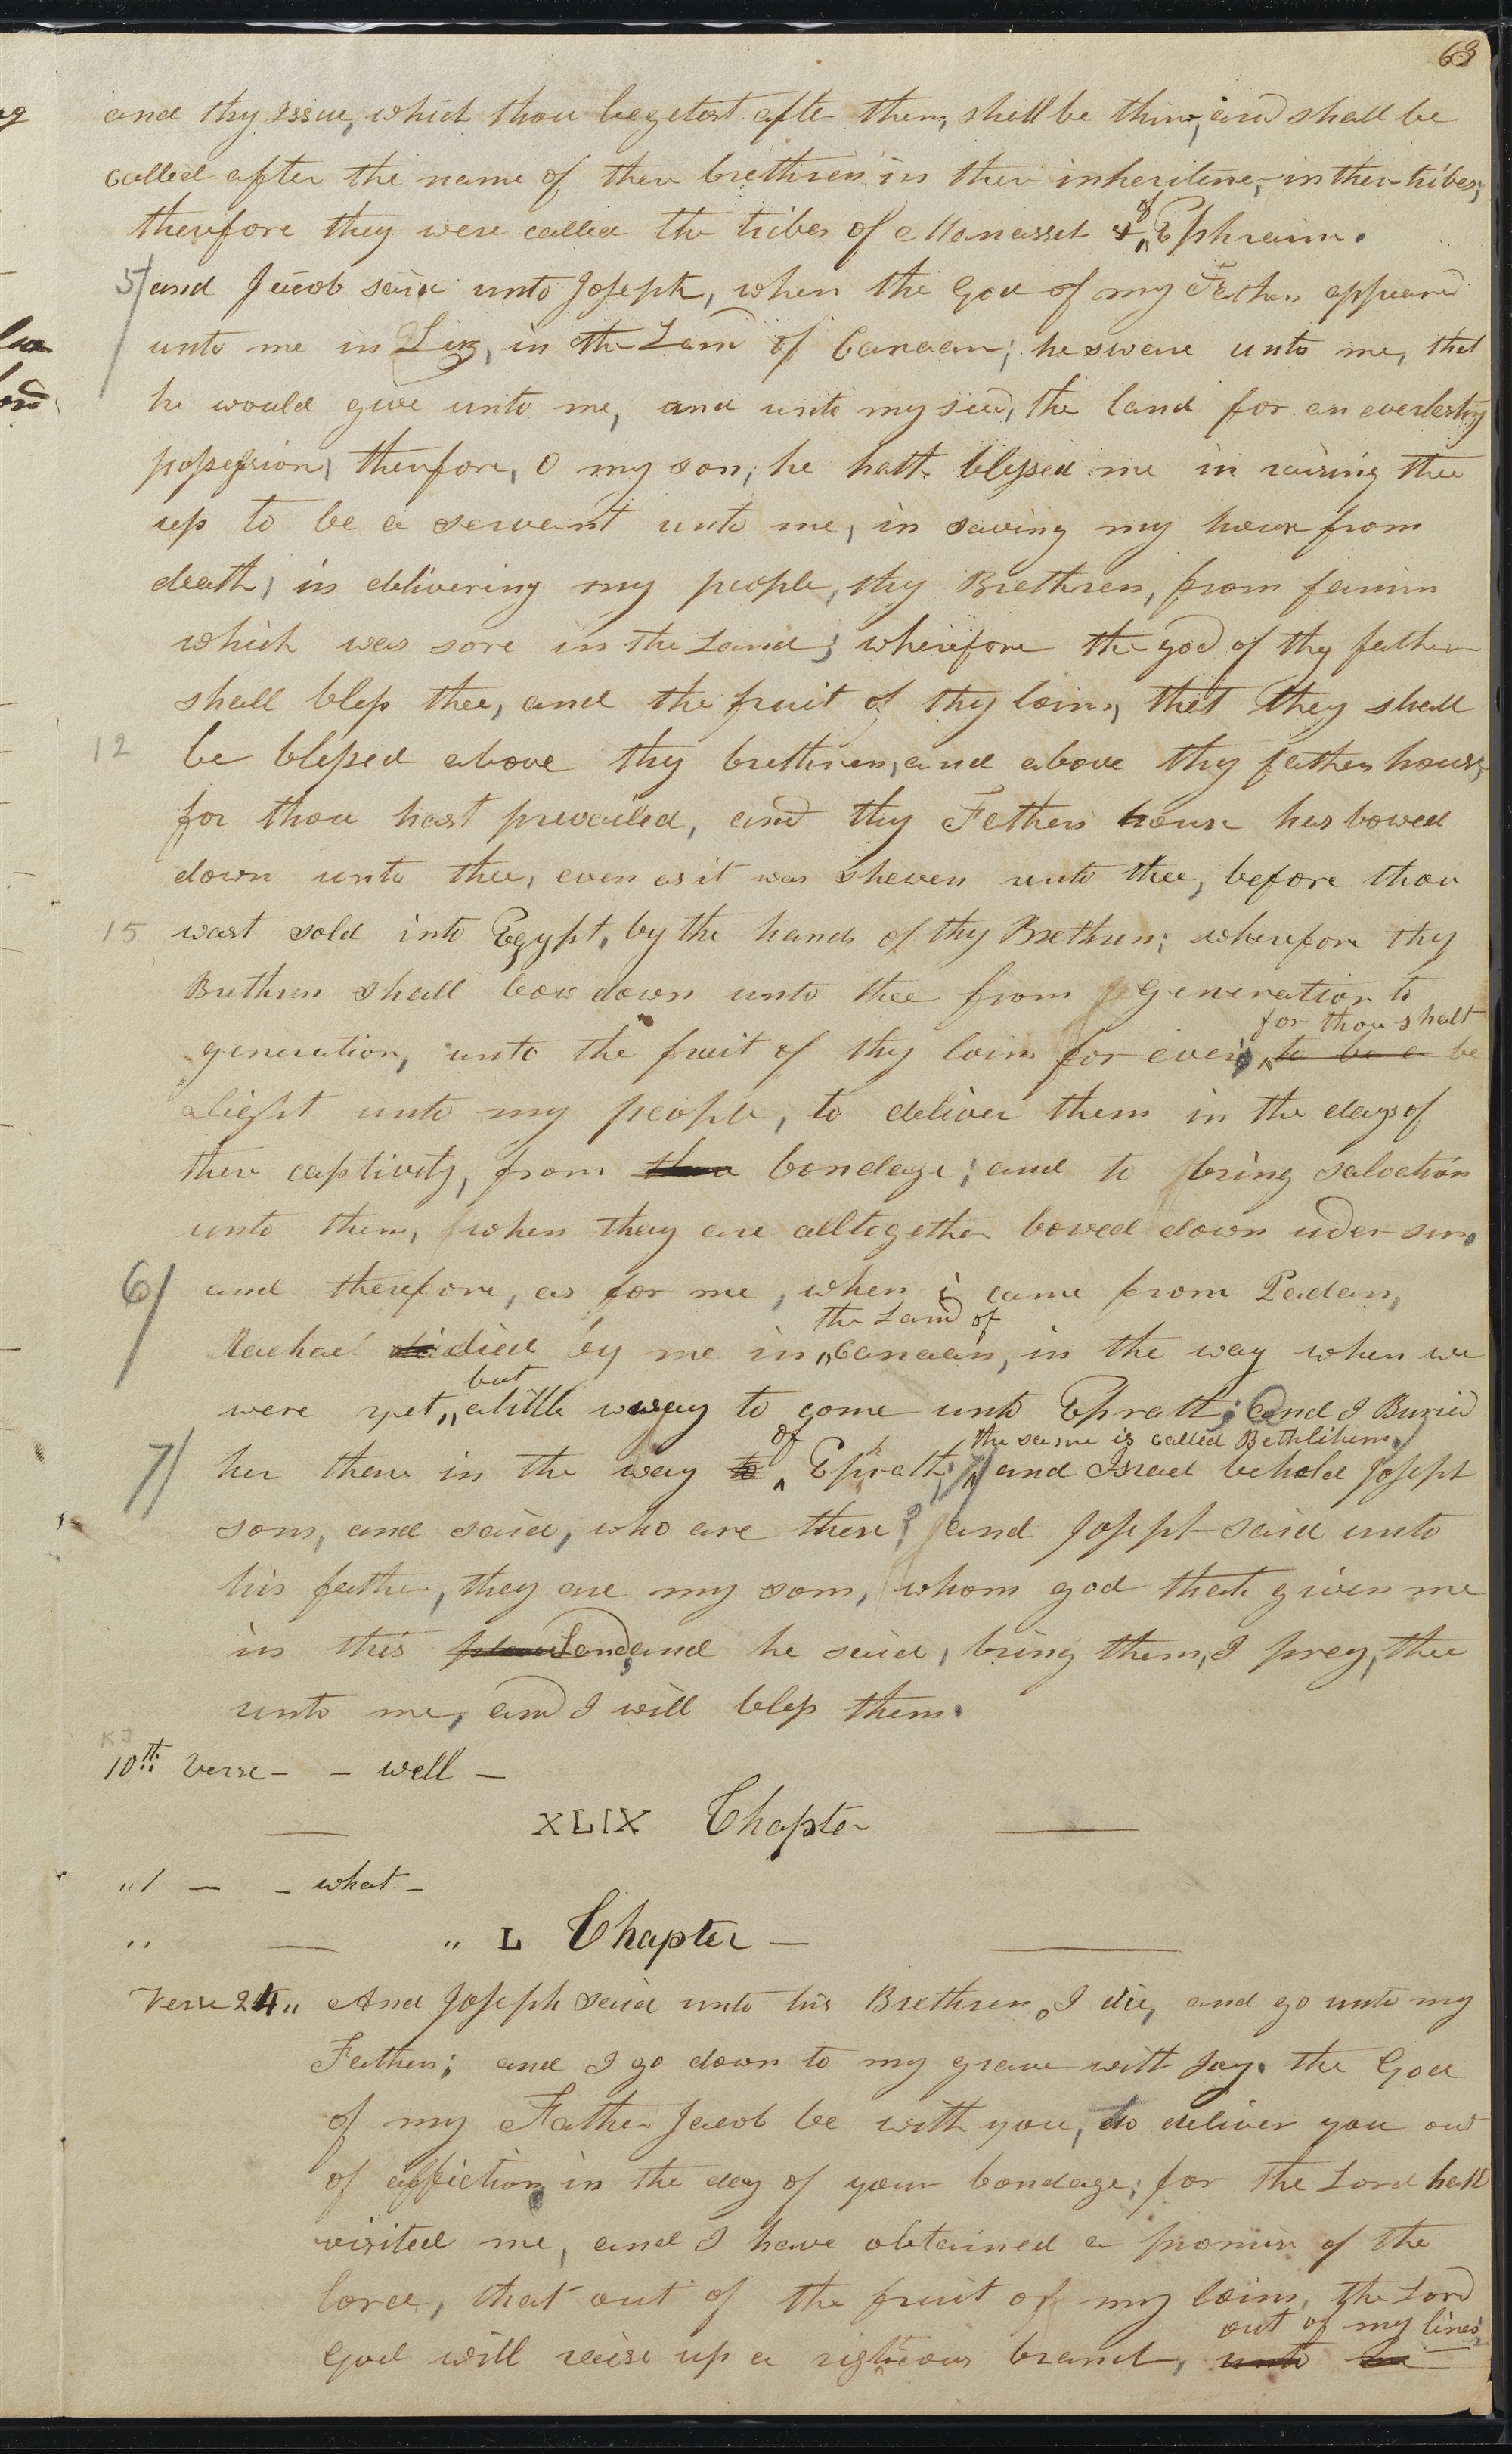 63
and thy Issue, which thou begetest afte them, shall be thine, and shall be
called after the name of ther brethren in ther inheritence, in ther tribes,
therefore they were called the tribes of Manasseh & of Ephraim.
5/ and Jacob said unto Joseph, when the God of my Fathers appeared
unto me in Luz, in the Land of Canaan; he sware unto me, that
he would give unto me, and unto my seed, the land for an everlasting
possession, therefore, O my son, he hath blessed me in raising thee
up to be a servant unto me, in saving my house from
death; in delivering my people, thy Brethren, from famin
which was sore in the Land; wherefore the god of thy fathers
shall bless thee, and the fruit of thy loins, that they shall
12 be blessed above thy brethren, and above thy fathers house;
for thou hast prevailed, and thy Fathers house has bowed
down unto thee, even as it was shewen unto thee, before thou
15 wast sold into Egypt, by the hands of thy Brethren; wherefore thy
Brethren shall bow down unto thee from generation to
for thou shalt
generation, unto the fruit of thy loins for ever, to be a be
a light unto my people, to deliver them in the days of
ther captivity, from bondage; and to bring salvation
unto them, when they are alltogether bowed down uder sin.
6/ and therefore, as for me, when i came from Padan,
the Land of
Rachael di died by me in Canaan, in the way when we
but
were yet, a little way to come unto Ephrath; and I Buried
of the same is called Bethlehem.
7/ her there in the way to Ephrath; 7/ and Israel behold Joseph
sons, and said, who are these? and Joseph said unto
his father, they are my sons, whom god hath given me
in this Land, and he said, bring them, I pray, thee
unto me, and I will bless them.
KJ
10th verse - - well -
XLIX Chapter
" 1 - - what -
" " L Chapter -
Verse 24 " And Joseph said unto his Brethren, I die, and go unto my
Fathers; and I go down to my grave with Joy. the God
of my Father Jacob be with you, to deliver you out
of affliction in the day of your bondage; for the Lord hath
visited me, and I have obtained a promise of the
lord, that out of the fruit of my loins, the Lord
out of my lines
God will raise up a righteous branch, unto me